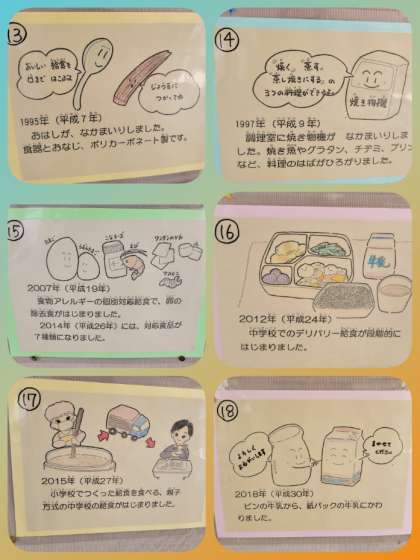 ⑬
おいしい 給食を
口まで はこぶよ
じょうぶに
つかってね
1995年（平成７年）
おはしが、なかまいりしました。
食器とおなじ、ポリカーボネート製です。
⑭
焼く。蒸す。
蒸し焼きにする。の
３つの料理ができるよ
焼き物機
1997年（平成９年）
調理室に焼き物機が なかまいりしま
した。焼き魚やグラタン、チヂミ、プリン
など、料理のはばがひろがりました。
⑮
2007年（平成19年）
食物アレルギーの個別対応給食で、卵の
除去食がはじまりました。
2014年（平成26年）には、対応食品が
７種類になりました。
⑯
牛乳
2012年（平成24年）
中学校でのデリバリー給食が段階的に
はじまりました。
⑰
2015年（平成27年）
小学校でつくった給食を食べる、親子
方式の中学校の給食がはじまりました。
⑱
よろしく
おねがいします
まかせて
ください
2018年（平成30年）
ビンの牛乳から、紙パックの牛乳にかわ
りました。